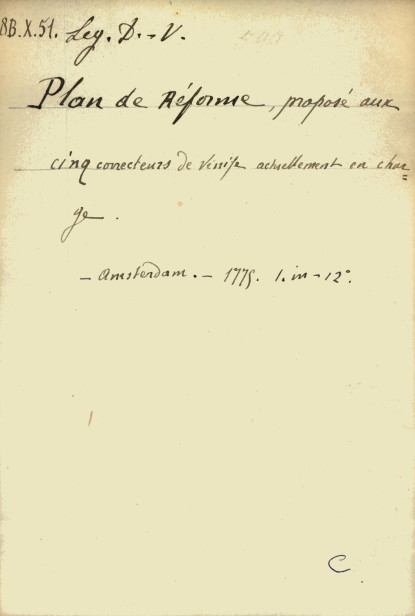 8B.X.51. Leg. D. - V.
Plan de Réforme, proposé aux
cinq correcteurs de Venise actuellement en char=
ge.
- Amsterdam. - 1775. 1. in-12°.
C